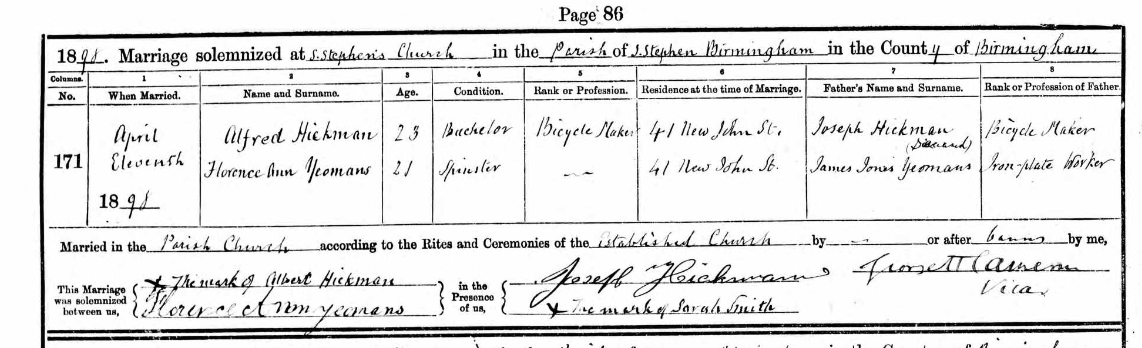 Page 86
1898. Marriage solemnized at S. Stephen's Church in the Parish of S. Stephen Birmingham in the County of Birmingham
Columns. 1 2 3 4 5 6 7 8
No. When Married. Name and Surname. Age. Condition. Rank or Profession. Residence at the time of Marriage. Father's Name and Surname. Rank or Profession of Father.
April Alfred Hickman 23 Bachelor Bicycle Maker 41 New John St. Joseph Hickman Bicycle Maker
(Deceased)
171 Eleventh Florence Ann Yeomans 21 Spinster — 41 New John St. James Jones Yeomans Iron-plate Worker
1898
Married in the Parish Church according to the Rites and Ceremonies of the Established Church by — or after banns by me,
This Marriage was solemnized between us, X The mark of Albert Hickman in the Presence of us, Joseph Hickman Cameron
Florence Ann Yeomans X The mark of Sarah Smith Vicar